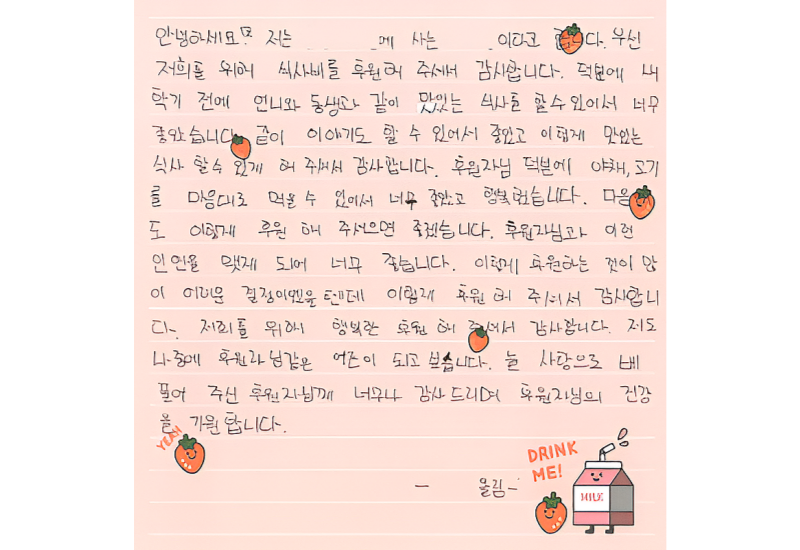 안녕하세요? 저는 에 사는 이라고 다. 우선
저희를 위해 식사비를 후원해 주셔서 감사합니다. 덕분에 내
학기 전에 언니와 동생과 같이 맛있는 식사를 할 수 있어서 너무
좋았습니다. 같이 이야기도 할 수 있어서 좋았고 이렇게 맛있는
식사 할 수 있게 해 주셔서 감사합니다. 후원자님 덕분에 야채, 고기
를 마음대로 먹을 수 있어서 너무 좋았고 행복했습니다. 다음
도 이렇게 후원 해 주셨으면 좋겠습니다. 후원자님과 이런
인연을 맺게 되어 너무 좋습니다. 이렇게 후원하는 것이 많
이 어려운 결정이였을 텐데 이렇게 후원 해 주셔서 감사합니
다. 저희를 위해 행복한 후원 해 주셔서 감사합니다. 저도
나중에 후원자님같은 어른이 되고 싶습니다. 늘 사랑으로 베
풀어 주신 후원자님께 너무나 감사드리며 후원자님의 건강
을 기원합니다.
YEAH
- 올림 -
DRINK
ME!
MILK